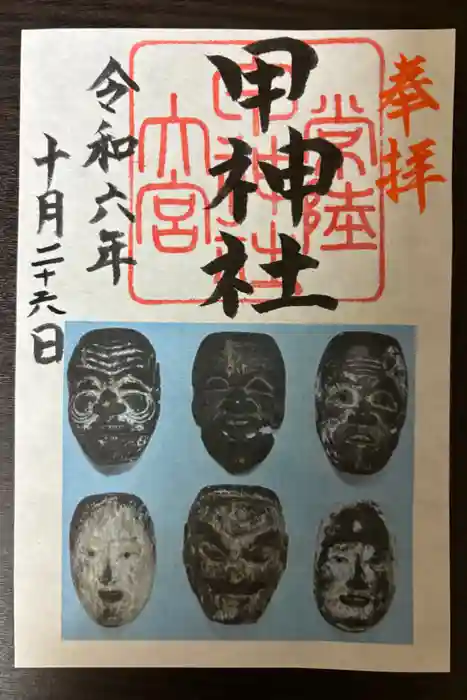 奉拝
甲神社
常陸
甲神社
大宮
令和六年
十月二十六日